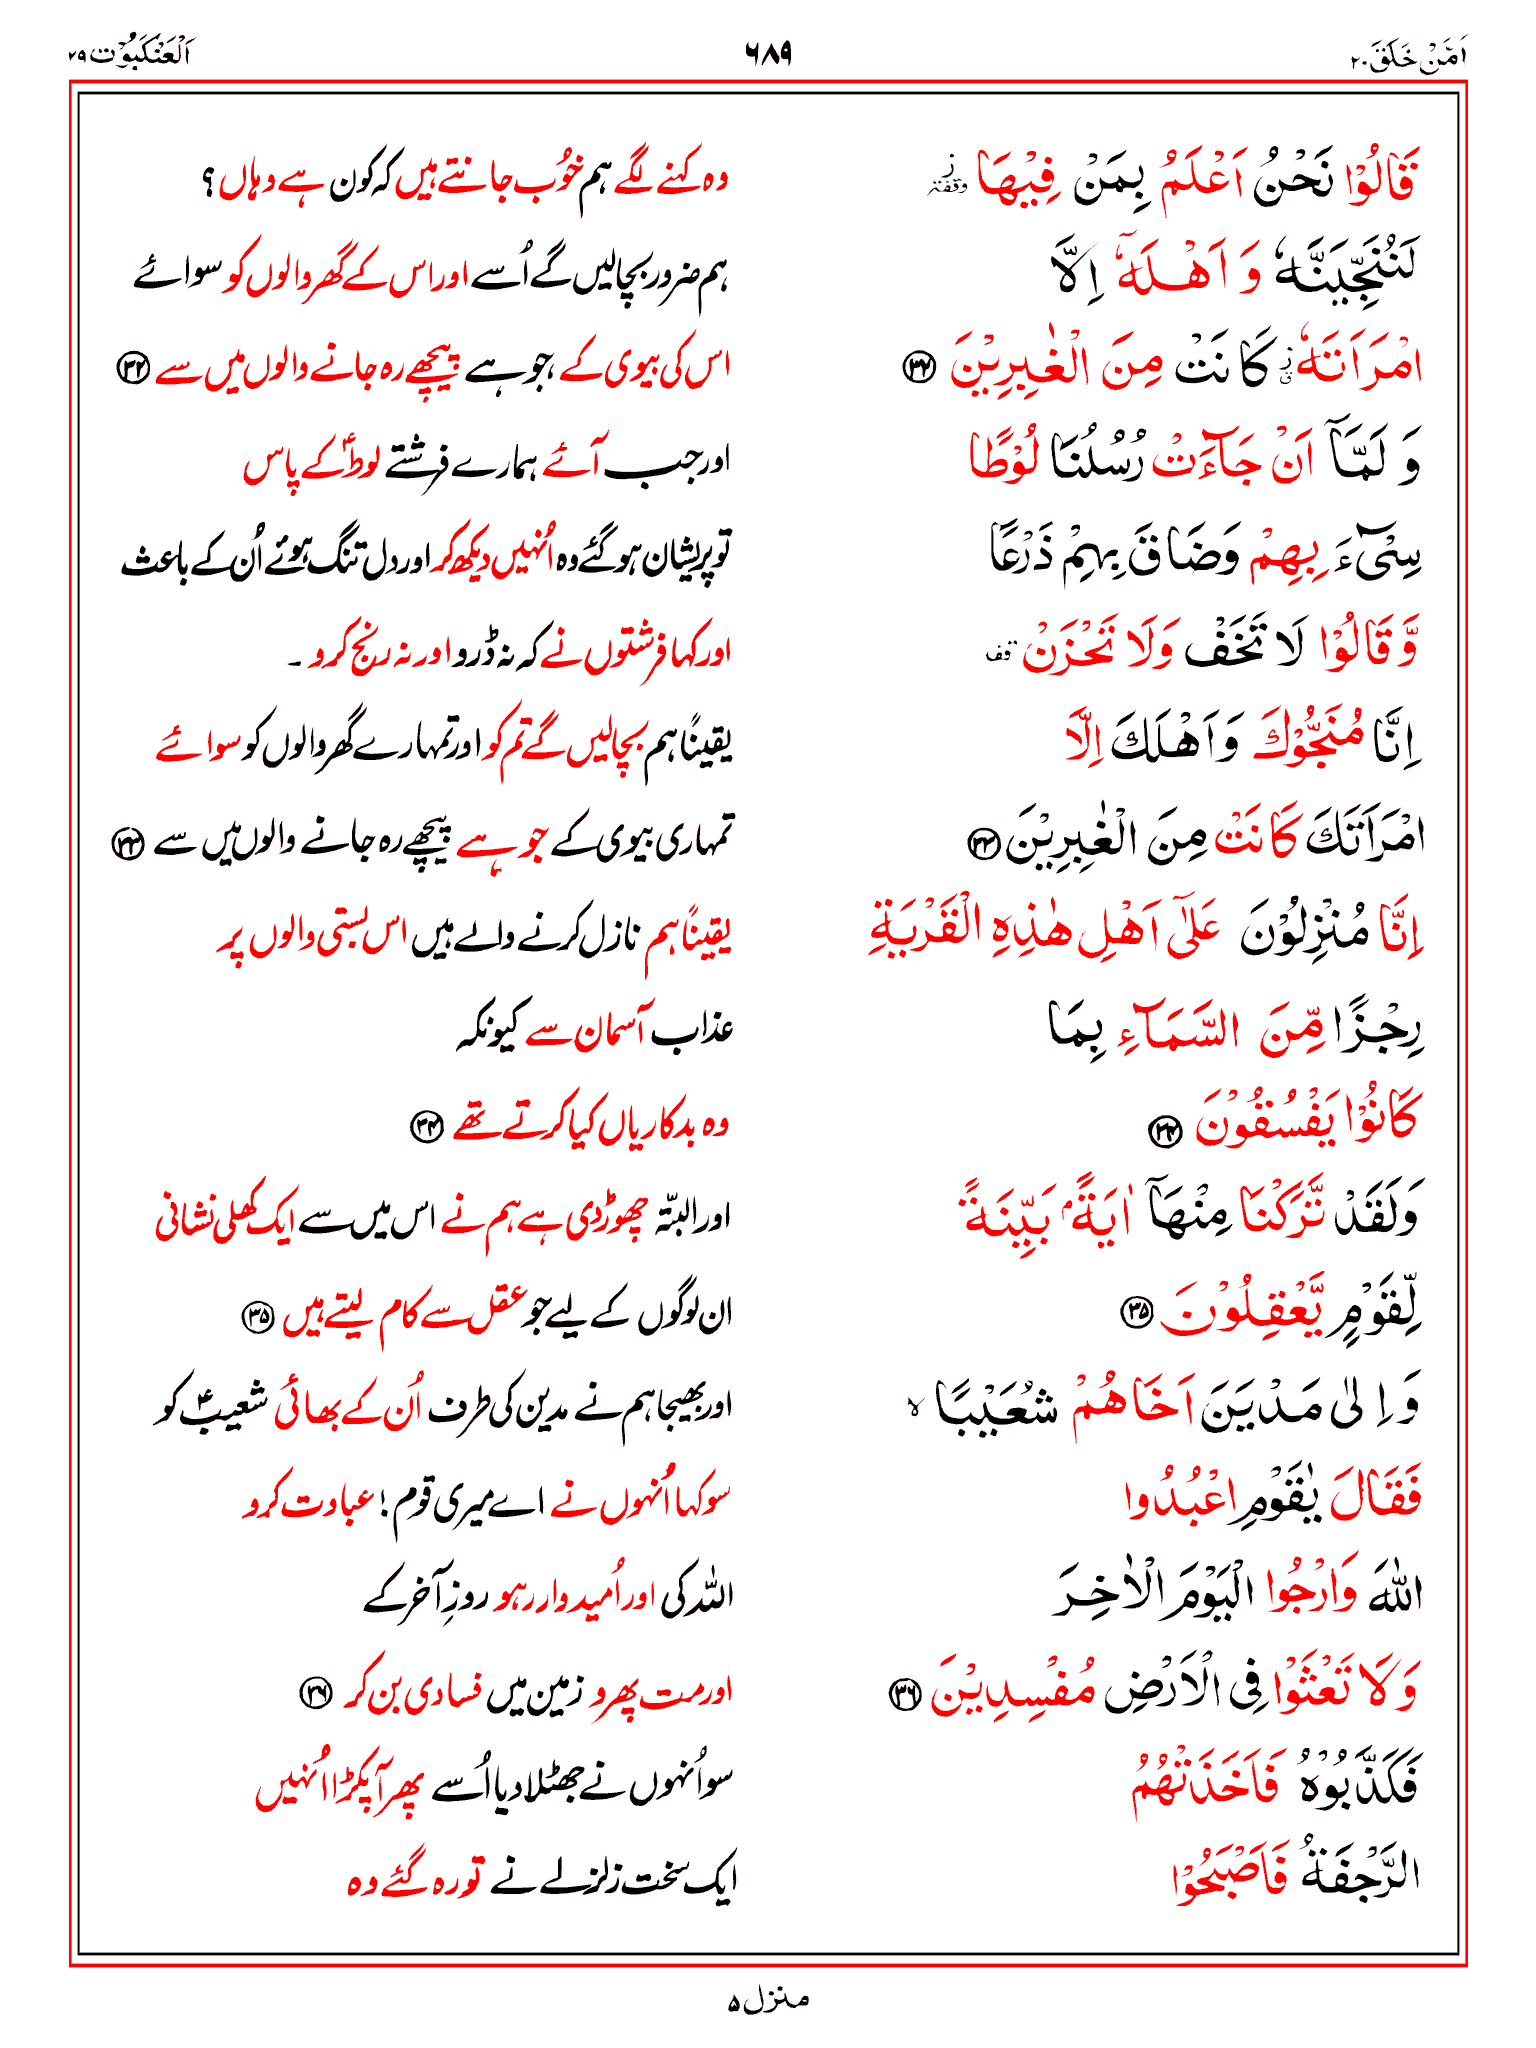 اَمَّنْ خَلَقَ ٢٠ ٦٨٩ اَلْعَنْكَبُوْت ٢٩
قَالُوْا نَحْنُ اَعْلَمُ بِمَنْ فِيْهَا ز وقفۃ وہ کہنے لگے ہم خُوب جانتے ہیں کہ کون ہے وہاں؟
لَنُنَجِّيَنَّهٗ وَ اَهْلَهٗۤ اِلَّا ہم ضرور بچالیں گے اُسے اور اس کے گھر والوں کو سوائے
امْرَاَتَهٗ ز ق كَانَتْ مِنَ الْغٰبِرِيْنَ ﴿۳۲﴾ اس کی بیوی کے ،جو ہے پیچھے رہ جانے والوں میں سے ﴿۳۲﴾
وَ لَمَّاۤ اَنْ جَآءَتْ رُسُلُنَا لُوْطًا اور جب آئے ہمارے فرشتے لوطؑ کے پاس
سِیْٓءَ بِهِمْ وَضَاقَ بِهِمْ ذَرْعًا تو پریشان ہو گئے وہ اُنہیں دیکھ کر اور دل تنگ ہوئے اُن کے باعث
وَّ قَالُوْا لَا تَخَفْ وَلَا تَحْزَنْ قف اور کہا فرشتوں نے کہ نہ ڈرو اور نہ رنج کرو ۔
اِنَّا مُنَجُّوْكَ وَاَهْلَكَ اِلَّا یقیناً ہم بچالیں گے تم کو اور تمہارے گھر والوں کو سوائے
امْرَاَتَكَ كَانَتْ مِنَ الْغٰبِرِيْنَ ﴿۳۳﴾ تمہاری بیوی کے جو ہے پیچھے رہ جانے والوں میں سے ﴿۳۳﴾
اِنَّا مُنْزِلُوْنَ عَلٰۤی اَهْلِ هٰذِهِ الْقَرْيَةِ یقیناً ہم نازل کرنے والے ہیں اس بستی والوں پر
رِجْزًا مِّنَ السَّمَآءِ بِمَا عذاب آسمان سے کیونکہ
كَانُوْا يَفْسُقُوْنَ ﴿۳۴﴾ وہ بدکاریاں کیا کرتے تھے ﴿۳۴﴾
وَلَقَدْ تَّرَكْنَا مِنْهَاۤ اٰيَةًۢ بَيِّنَةً اور البتّہ چھوڑدی ہے ہم نے اس میں سے ایک کھلی نشانی
لِّقَوْمٍ يَّعْقِلُوْنَ ﴿۳۵﴾ ان لوگوں کے لیے جو عقل سے کام لیتے ہیں ﴿۳۵﴾
وَ اِلٰی مَدْيَنَ اَخَاهُمْ شُعَيْبًا ۙ اور بھیجا ہم نے مدین کی طرف اُن کے بھائی شعیبؑ کو
فَقَالَ يٰقَوْمِ اعْبُدُوا سو کہا اُنہوں نے اے میری قوم! عبادت کرو
اللّٰهَ وَارْجُوا الْيَوْمَ الْاٰخِرَ اللہ کی اور اُمیدوار رہو روزِ آخر کے
وَلَا تَعْثَوْا فِی الْاَرْضِ مُفْسِدِيْنَ ﴿۳۶﴾ اور مت پھرو زمین میں فسادی بن کر ﴿۳۶﴾
فَكَذَّبُوْهُ فَاَخَذَتْهُمُ سو اُنہوں نے جھٹلا دیا اُسے پھر آپکڑا اُنہیں
الرَّجْفَةُ فَاَصْبَحُوْا ایک سخت زلزلے نے تو رہ گئے وہ
منزل ۵